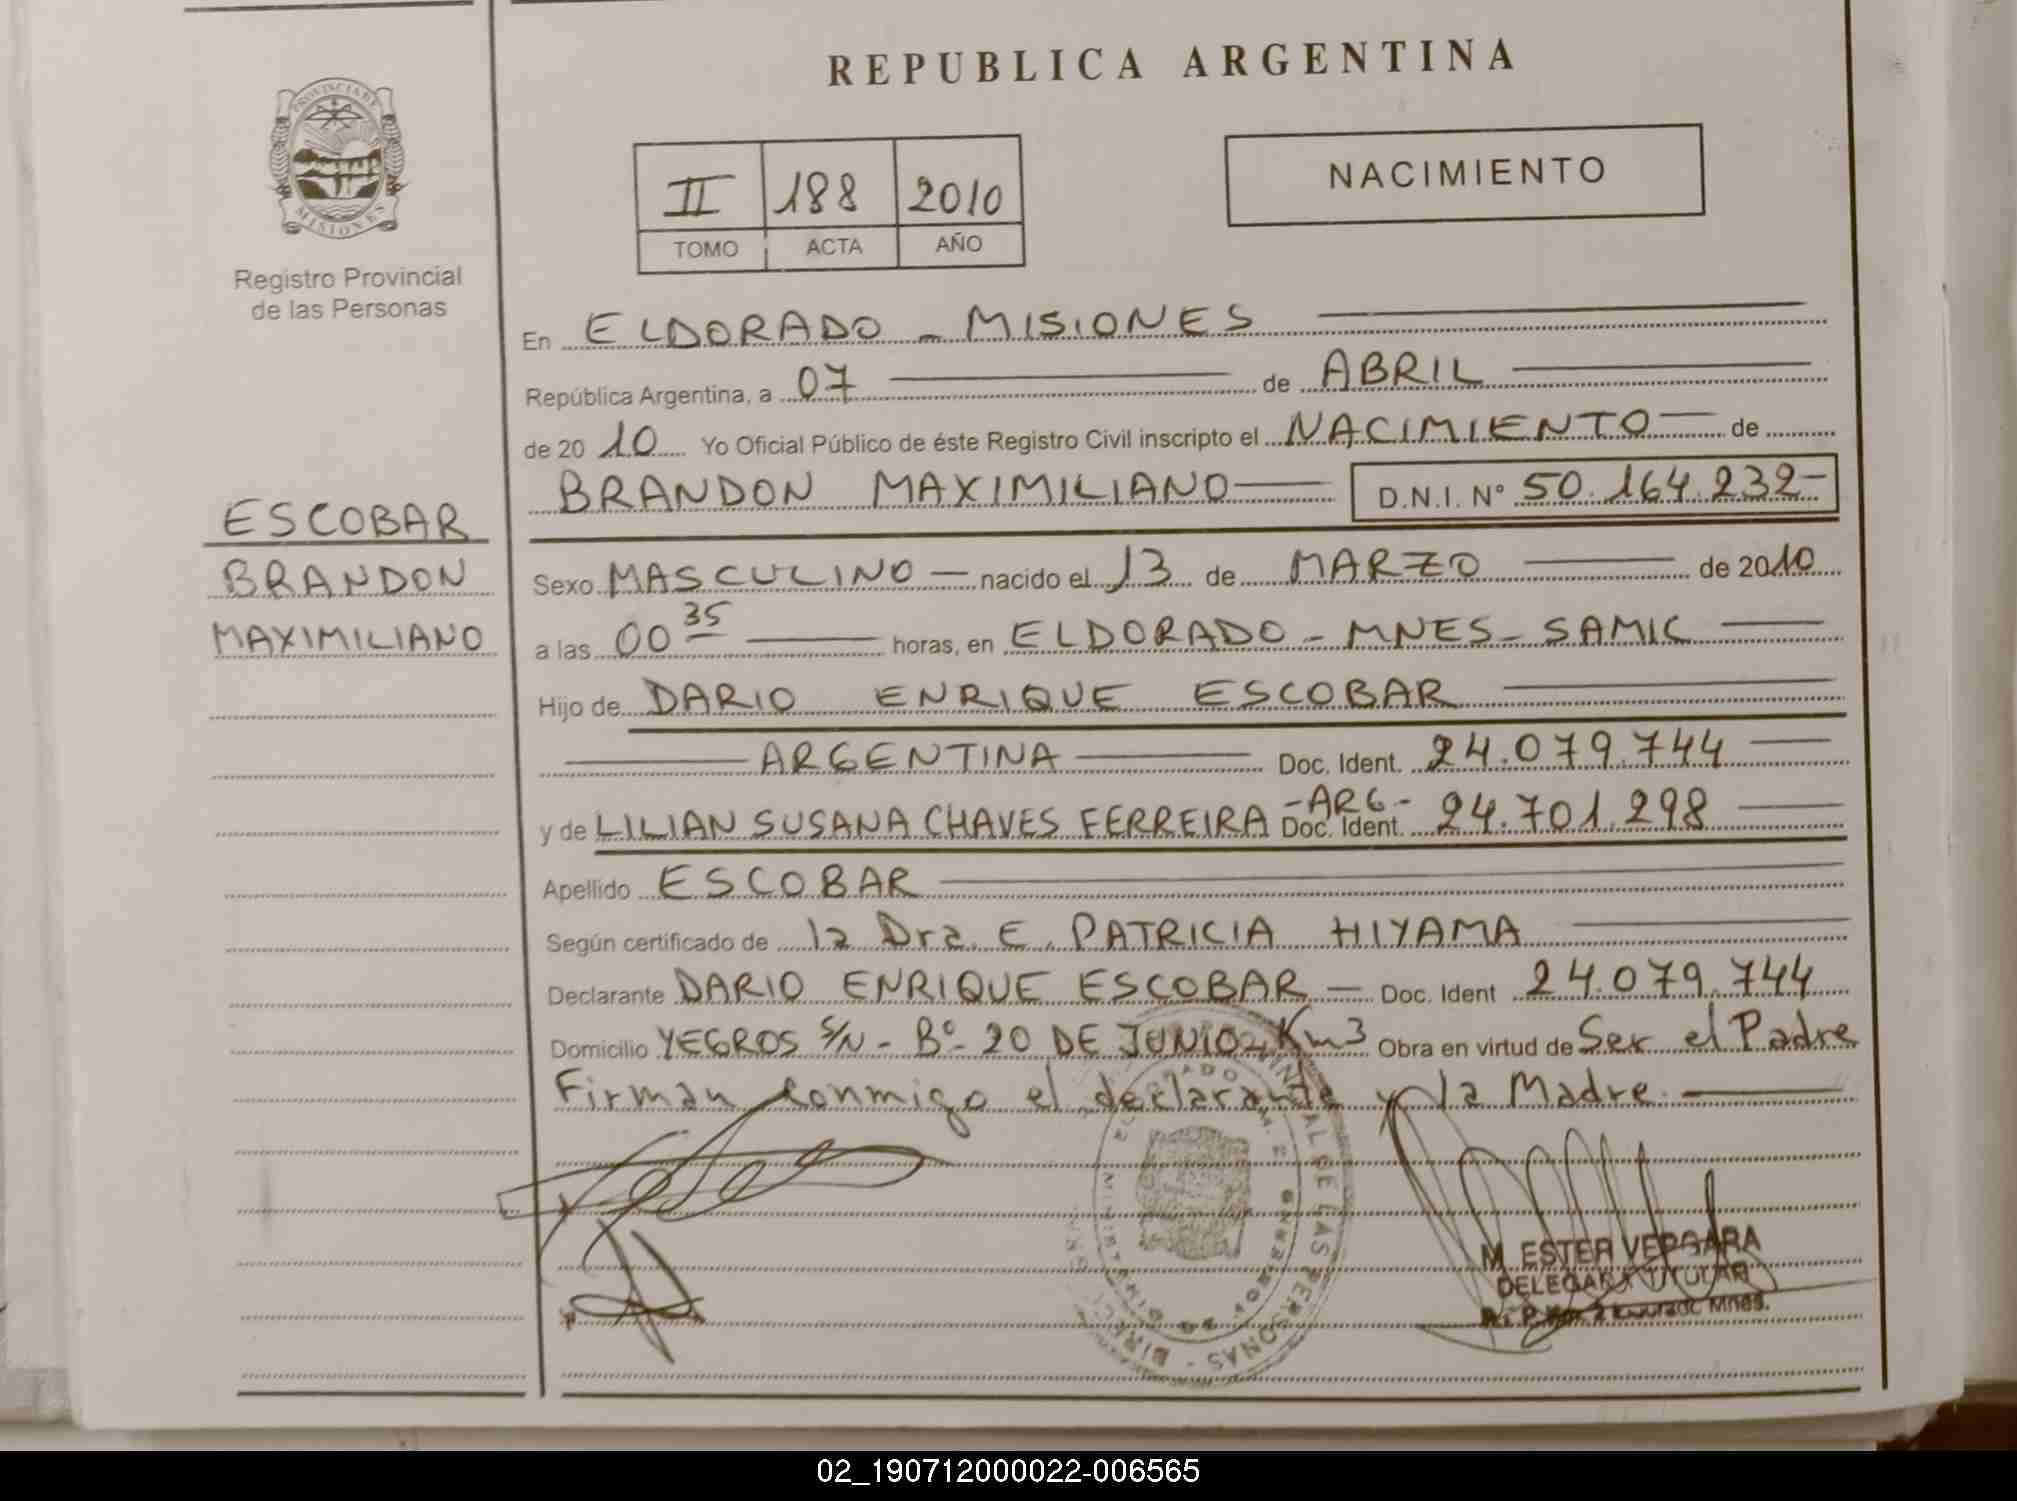 REPUBLICA ARGENTINA
PROVINCIA DE
MISIONES
Registro Provincial
de las Personas
NACIMIENTO
II 188 2010
TOMO ACTA AÑO
En ELDORADO - MISIONES
República Argentina, a 07 de ABRIL
de 2010 Yo Oficial Público de éste Registro Civil inscripto el NACIMIENTO de
BRANDON MAXIMILIANO D.N.I. N° 50.164.232-
ESCOBAR
BRANDON
MAXIMILIANO
Sexo MASCULINO nacido el 13 de MARZO de 2010
a las 00 35 horas, en ELDORADO - MNES - SAMIC
Hijo de DARIO ENRIQUE ESCOBAR
ARGENTINA Doc. Ident. 24.079.744
y de LILIAN SUSANA CHAVES FERREIRA -ARG- Doc. Ident. 24.701.298
Apellido ESCOBAR
Según certificado de la Dra. E. PATRICIA HIYAMA
Declarante DARIO ENRIQUE ESCOBAR Doc. Ident 24.079.744
Domicilio YEGROS S/N - B° 20 DE JUNIO - Km 3 Obra en virtud de Ser el Padre
Firman conmigo el declarante y la Madre.
DE LAS PERSONAS
M. ESTER VERGARA
DELEGADA TITULAR
02_190712000022-006565